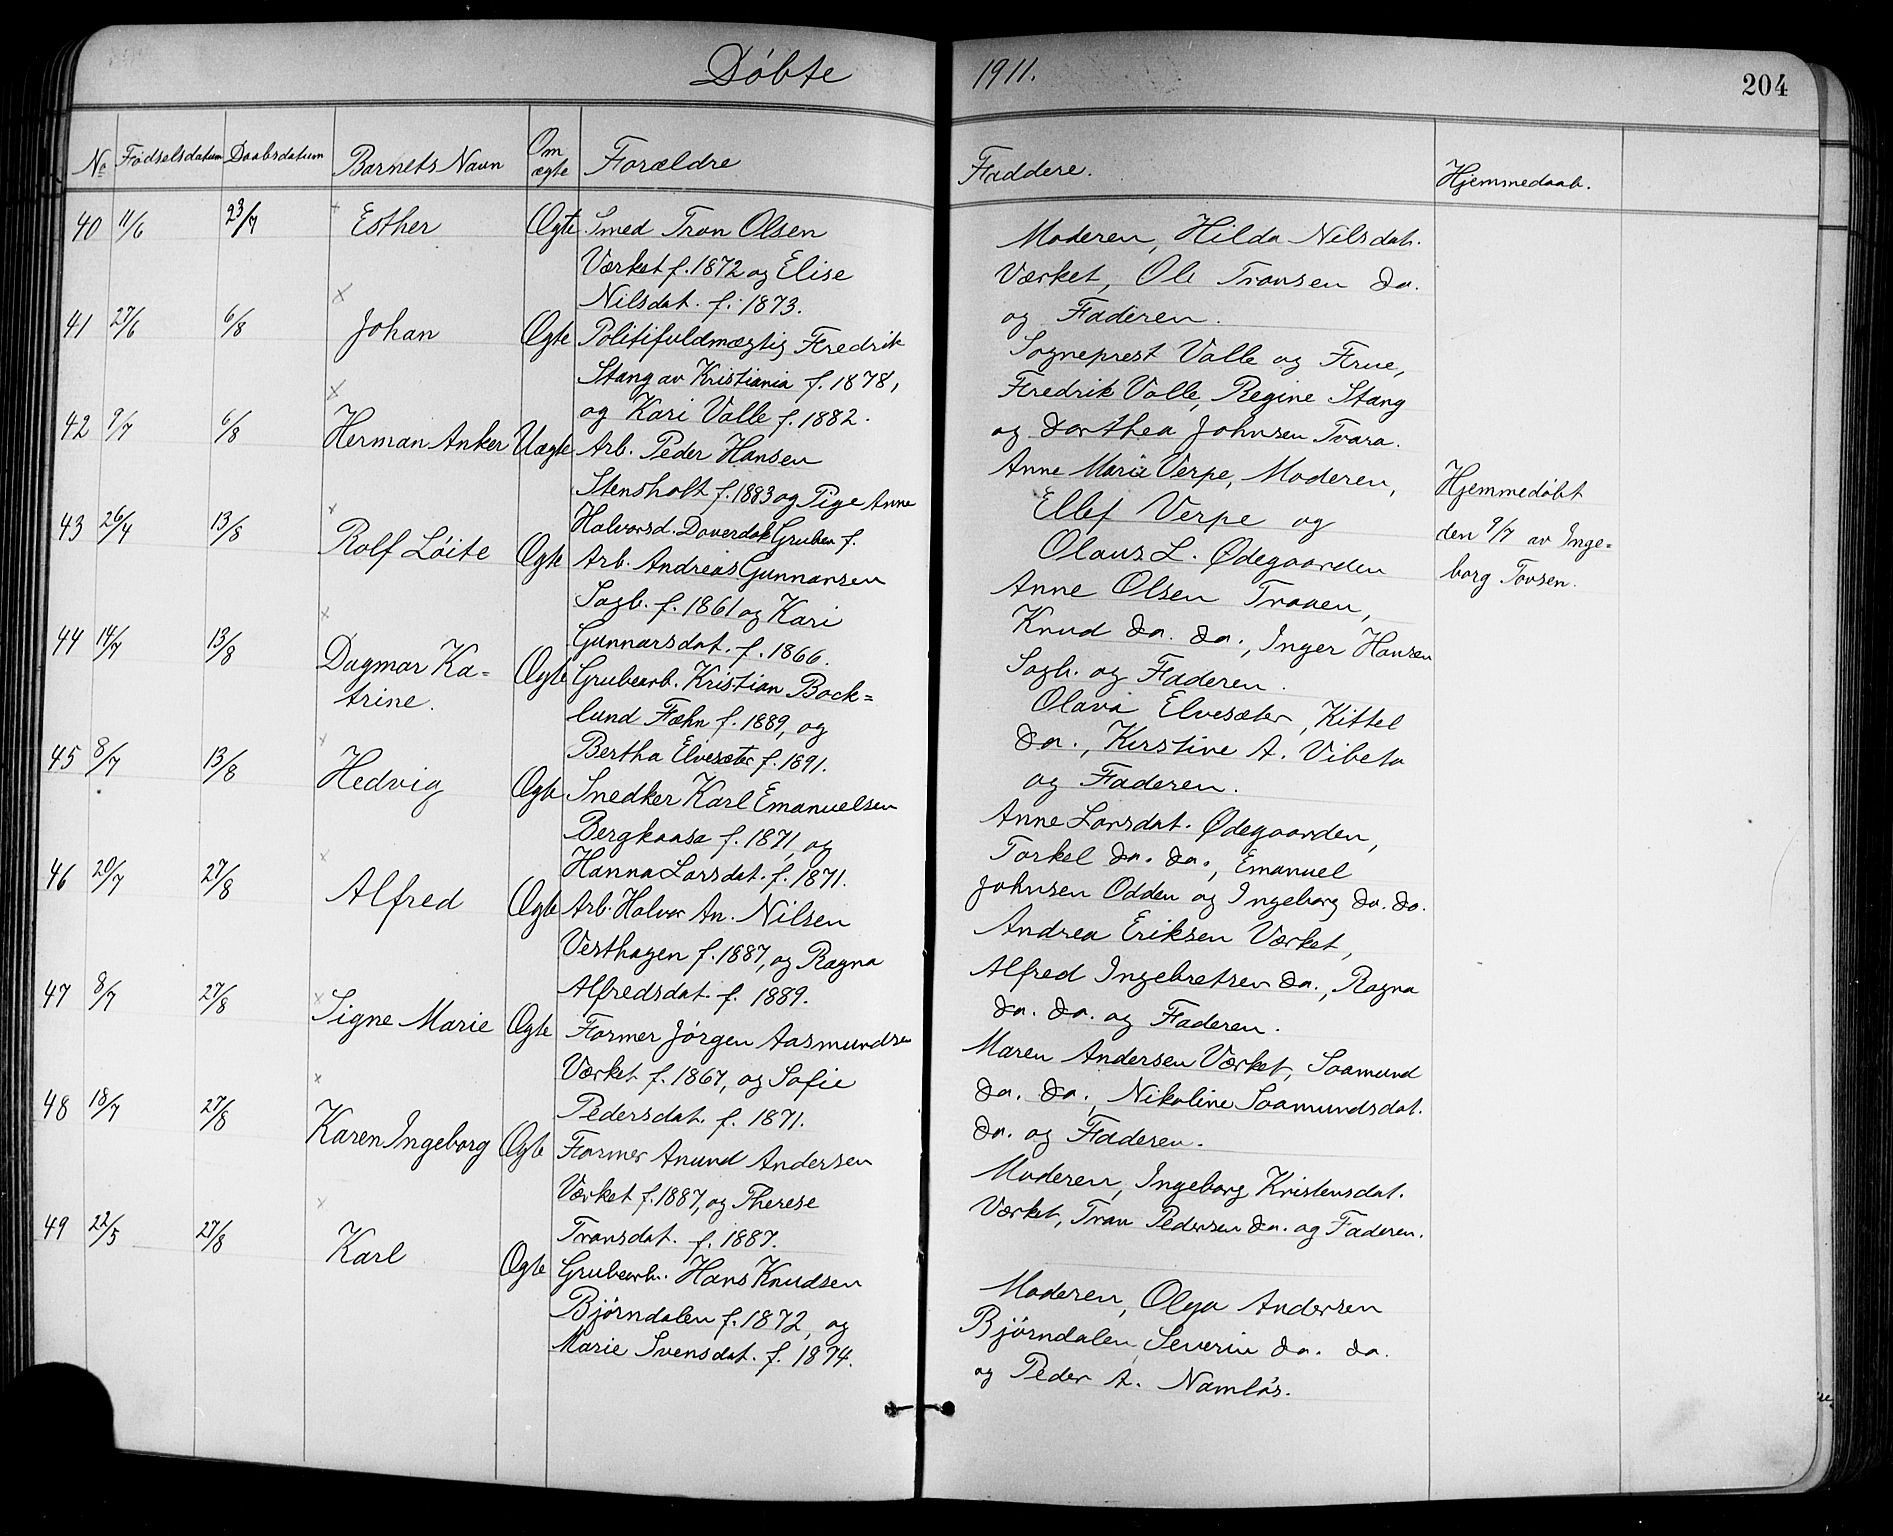 Døbte
1911.
204
No Fødselsdatum Daabsdatum Barnets Navn Om ægte Forældre
Faddere.
Hjemmedaab.
40 11/6 23/7 Esther Ægte Smed Tron Olsen
Værket f. 1872 og Elise
Nilsdat. f. 1873.
Moderen, Hilda Nilsdat.
Værket, Ole Tronsen do.
og Faderen.
41 27/6 6/8 Johan Ægte Politifuldmægtig Fredrik
Stang av Kristiania f. 1878,
og Kari Valle f. 1882.
Sogneprest Valle og Frue,
Fredrik Valle, Regine Stang
og Dorthea Johnsen Tvara.
42 9/7 6/8 Herman Anker Uægte Arb. Peder Hansen
Stensholt f. 1883 og Pige Anne
Halvorsd. Doverdok Gruben f.
Anne Marie Verpe, Moderen,
Ellef Verpe og
Olaus L. Ødegaarden
Hjemmedøbt
den 9/7 av Inge=
borg Tovsen.
43 26/4 13/8 Rolf Löite Ægte Arb. Andreas Gunnarsen
Sagb. f. 1861 og Kari
Gunnarsdat. f. 1866.
Anne Olsen Traaen,
Knud do. do., Inger Hansen
Sagb. og Faderen.
44 14/7 13/8 Dagmar Ka=
trine. Ægte Grubearb. Kristian Bock=
lund Fæhn f. 1889, og
Bertha Elvesæter f. 1891.
Olava Elvesæter, Kittel
do., Kirstine A. Vibeto
og Faderen.
45 8/7 13/8 Hedvig Ægte Snedker Karl Emanuelsen
Bergkaasa f. 1871, og
Hanna Larsdat. f. 1871.
Anne Larsdat. Ødegaarden,
Torkel do. do., Emanuel
Johnsen Odden og Ingeborg do. do.
46 20/7 27/8 Alfred Ægte Arb. Halvor An. Nilsen
Vesthagen f. 1887, og Ragna
Alfredsdat. f. 1889.
Andrea Eriksen Værket,
Alfred Ingebretsen do., Ragna
do. do. og Faderen.
47 8/7 27/8 Signe Marie Ægte Former Jörgen Aasmundsen
Værket f. 1867, og Sofie
Pedersdat. f. 1871.
Maren Andersen Værket, Saamund
do. do., Nikoline Saamundsdat.
do. og Faderen.
48 18/7 27/8 Karen Ingeborg Ægte Former Anund Andersen
Værket f. 1887, og Therese
Tronsdat. f. 1887.
Moderen, Ingeborg Kristensdat.
Værket, Tron Pedersen do. og Faderen.
49 22/5 27/8 Karl Ægte Grubearb. Hans Knudsen
Björndalen f. 1872, og
Marie Svensdat. f. 1874.
Moderen, Olga Andersen
Björndalen, Severin do. do.
og Peder A. Namlös.